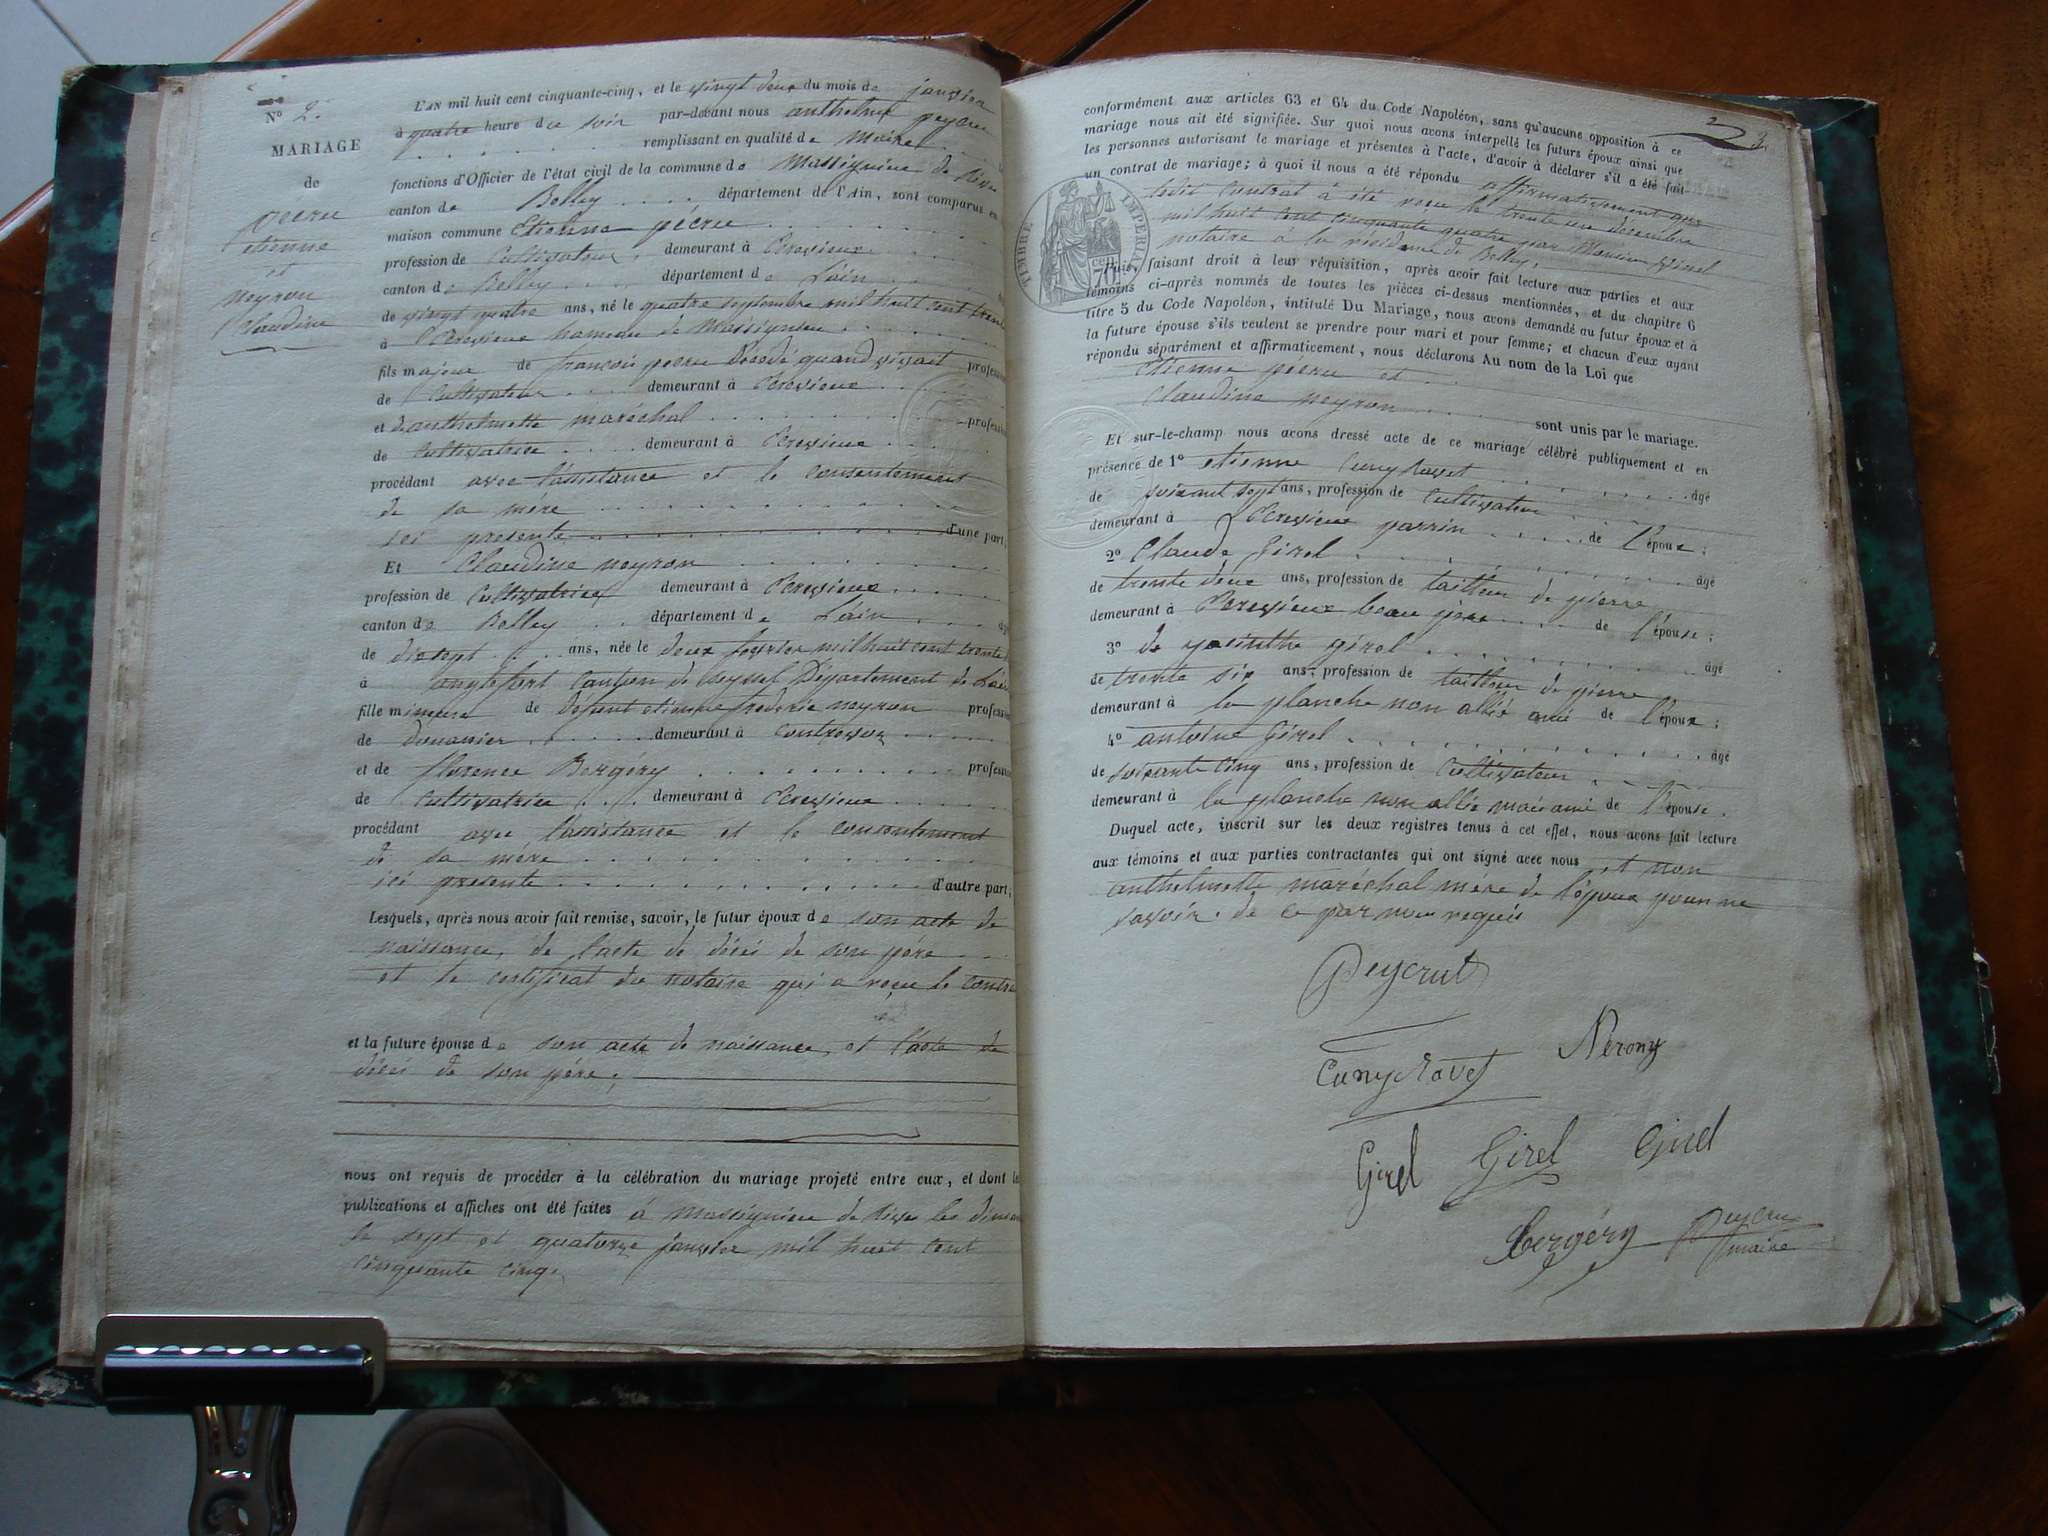 N° 2.
MARIAGE
de
pecru
etienne
et
neyron
Claudine
L'AN mil huit cent cinquante-cinq, et le vingt deux du mois de janvier
à quatre heure du soir par-devant nous anthelme peycru
remplissant en qualité de Maire
fonctions d'Officier de l'état civil de la commune de Massignieu de Rives
canton de Belley département de l'Ain, sont comparus en
maison commune Etienne pécru
profession de Cultivateur, demeurant à
canton de Belley département de Lain
de vingt quatre ans, né le quatre septembre mil huit cent trente
à hameau de Massignieu
fils majeur de françois pecru Décédé quand vivait profession
de Cultivateur demeurant à
et d'anthelmette maréchal profession
de Cultivatrice demeurant à
procédant avec l'assistance et le consentement
de sa mére
ici presente d'une part,
Et Claudine neyron
profession de Cultivatrice demeurant à
canton de Belley département de Lain
de dix sept ans, née le deux fevrier mil huit cent trente
à anglefort Canton de Seyssel Département de Lain
fille mineure de defunt etienne frederic neyron profession
de douanier demeurant à
et de florence Bergéry profession
de Cultivatrice demeurant à
procédant avec l'assistance et le consentement
de sa mére
ici presente d'autre part;
Lesquels, après nous avoir fait remise, savoir, le futur époux de son acte de
naissance, de l'acte de décés de son pére
et le certificat du notaire qui a recu le contra
et la future épouse de son acte de naissance, et l'acte de
décés de son pére;
nous ont requis de procéder à la célébration du mariage projeté entre eux, et dont les
publications et affiches ont été faites à Massignieu de Rives les diman
le sept et quatorze janvier mil huit cent
cinquante cinq.
2
TIMBRE IMPERIAL
conformément aux articles 63 et 64 du Code Napoléon, sans qu'aucune opposition à ce
mariage nous ait été signifiée. Sur quoi nous avons interpellé les futurs époux ainsi que
les personnes autorisant le mariage et présentes à l'acte, d'avoir à déclarer s'il a été fait
un contrat de mariage; à quoi il nous a été répondu affirmativement que
ledit Contrat à été recu le trente un décembre
mil huit cent cinquante quatre par Monsieur
notaire à la residence de Belley;
Puis, faisant droit à leur réquisition, après avoir fait lecture aux parties et aux
témoins ci-après nommés de toutes les pièces ci-dessus mentionnées, et du chapitre 6
titre 5 du Code Napoléon, intitulé Du Mariage, nous avons demandé au futur époux et à
la future épouse s'ils veulent se prendre pour mari et pour femme; et chacun d'eux ayant
répondu séparément et affirmativement, nous déclarons Au nom de la Loi que
etienne pécru et
Claudine neyron
sont unis par le mariage.
Et sur-le-champ nous avons dressé acte de ce mariage célébré publiquement et en
présence de 1° etienne Cuny Ravet âgé
de soixant sept ans, profession de Cultivateur
demeurant à parrin de l'époux;
2° Claude Girel âgé
de trente deux ans, profession de tailleur de pierre
demeurant à beau pere de l'épouse;
3° de girel âgé
de trente six ans, profession de tailleur de pierre
demeurant à la planche non allié ami de l'époux;
4° antoine Girel âgé
de soixante cinq ans, profession de Cultivateur
demeurant à la planche non allié mais ami de l'épouse.
Duquel acte, inscrit sur les deux registres tenus à cet effet, nous avons fait lecture
aux témoins et aux parties contractantes qui ont signé avec nous et non
anthelmette maréchal mére de l'époux pour ne
savoir. de ce par nous requis
Peycrut
Cuny Ravet
Nérony
Girel Girel Girel
Bergéry Peycru
maire